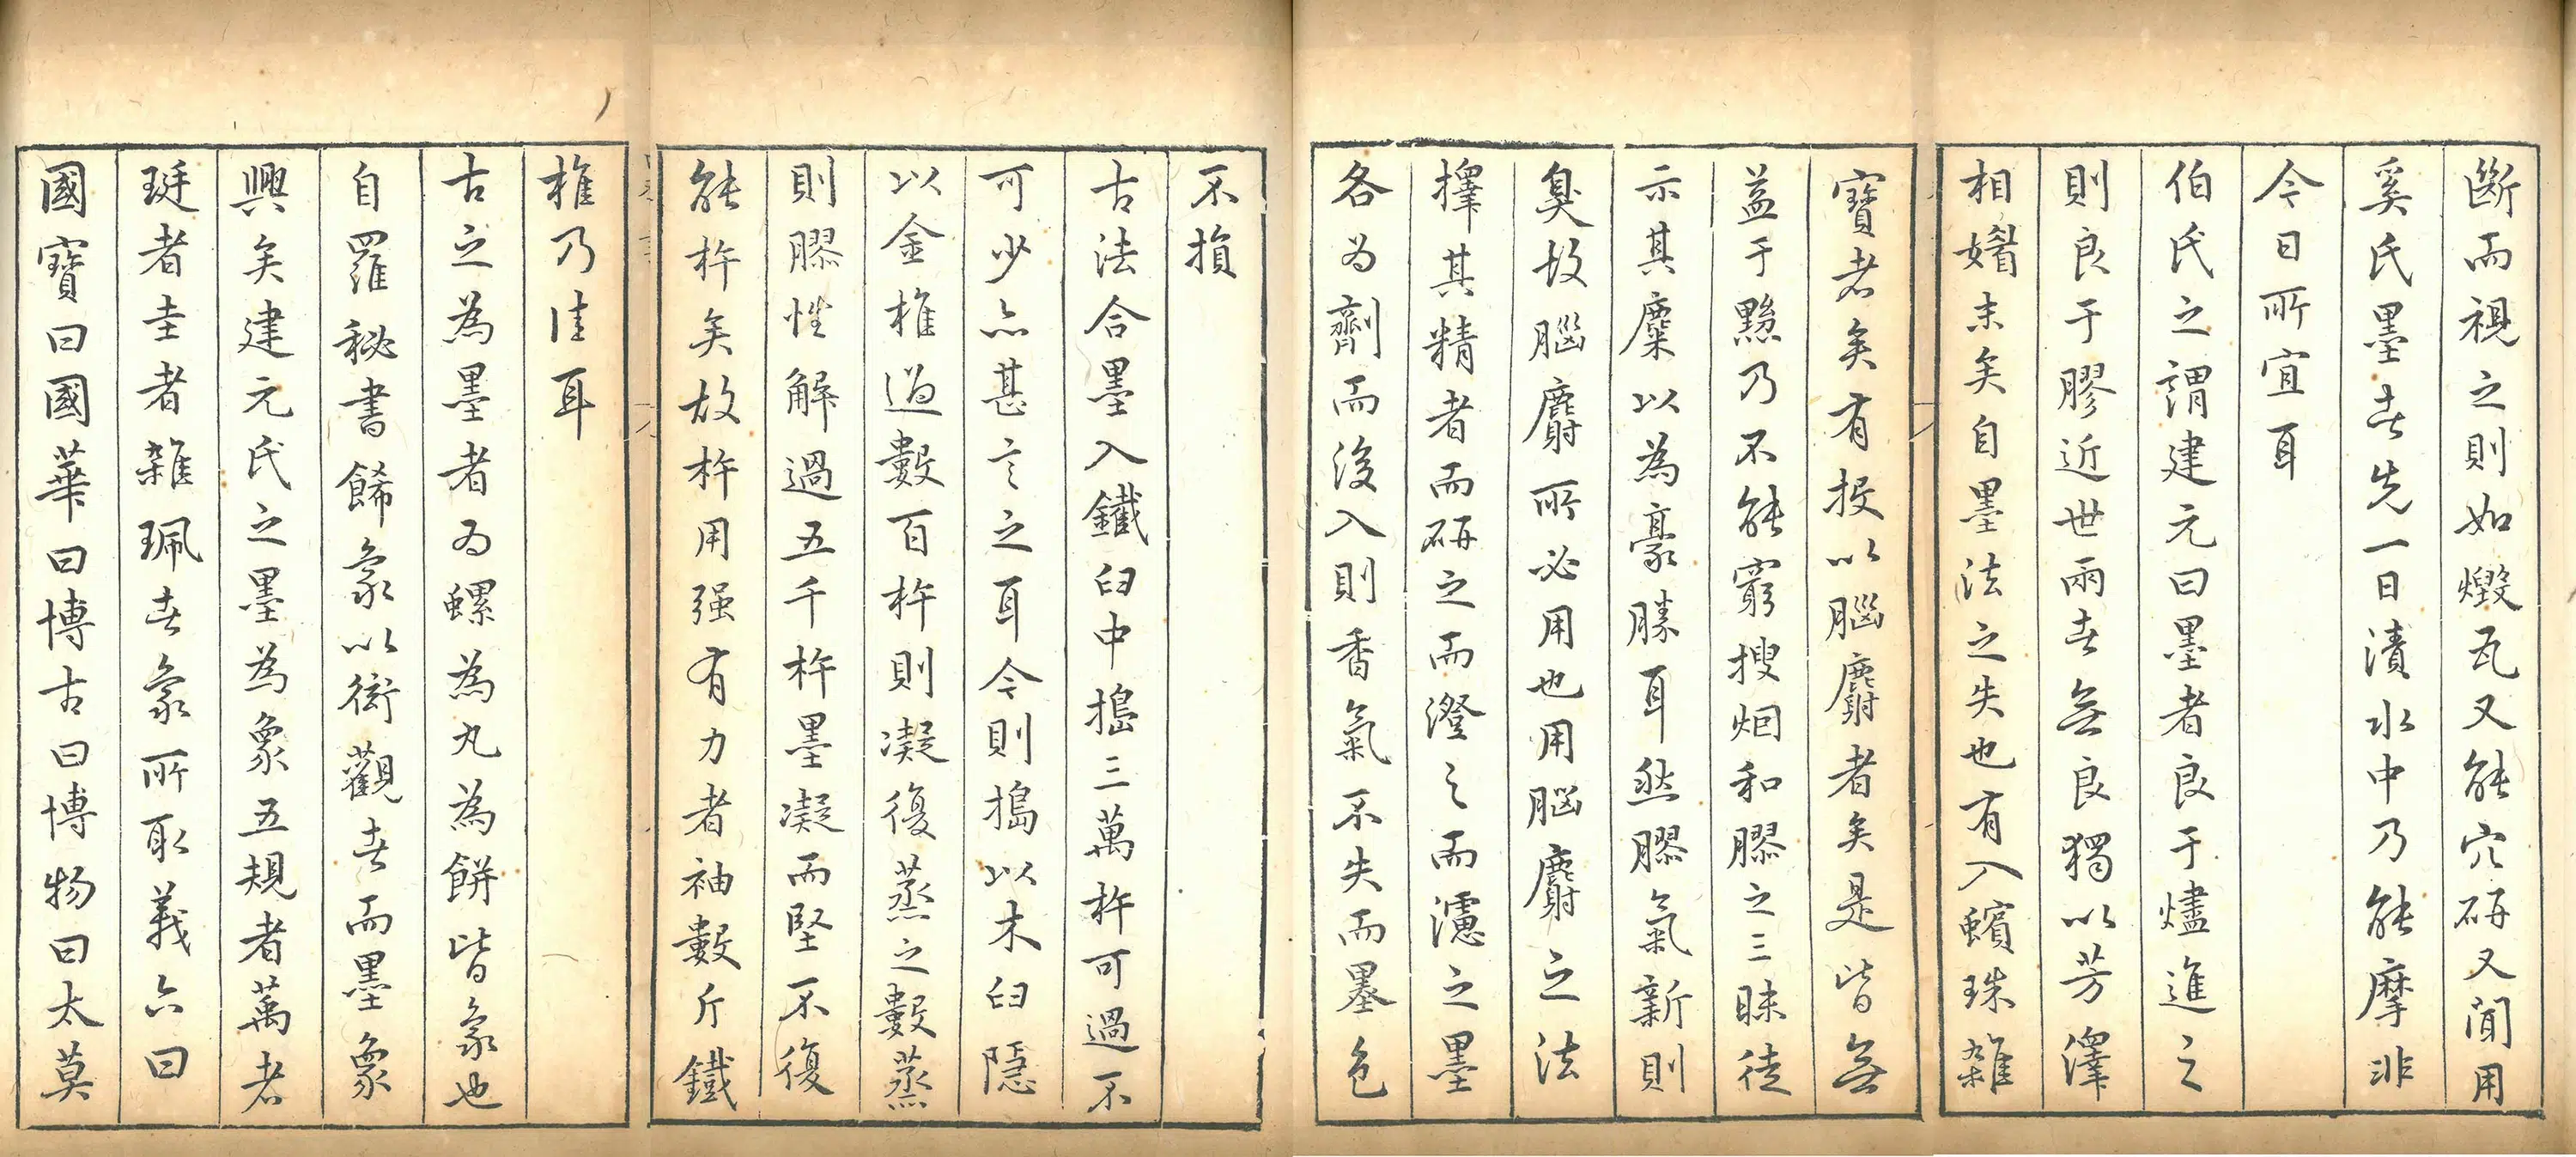 斷而視之則如燬瓦又能穴硏又聞用
奚氏墨者先一日漬水中乃能摩非
今日所宜耳
伯氏之謂建元曰墨者良于燼進之
則良于膠近世兩者無良獨以芳澤
相媚末矣自墨法之失也有入蠙珠雜
寶者矣有投以腦麝者矣是皆無
益于黟乃不能窮搜烟和膠之三昧徒
示其麋以為豪勝耳然膠氣新則
臭故腦麝所必用也用腦麝之法
擇其精者而硏之而澄之而濾之墨
各為劑而後入則香氣不失而墨色
不損
古法合墨入鐵臼中搗三萬杵可過不
可少亦甚言之耳今則搗以木臼隱
以金椎過數百杵則凝復蒸之數蒸
則膠性解過五千杵墨凝而堅不復
能杵矣故杵用强有力者袖數斤鐵
椎乃佳耳
古之為墨者為螺為丸為餅皆象也
自羅秘書餙象以衒觀者而墨象
興矣建元氏之墨為象五規者萬者
珽者圭者雜珮者象所取義六曰
國寶曰國華曰博古曰博物曰太莫